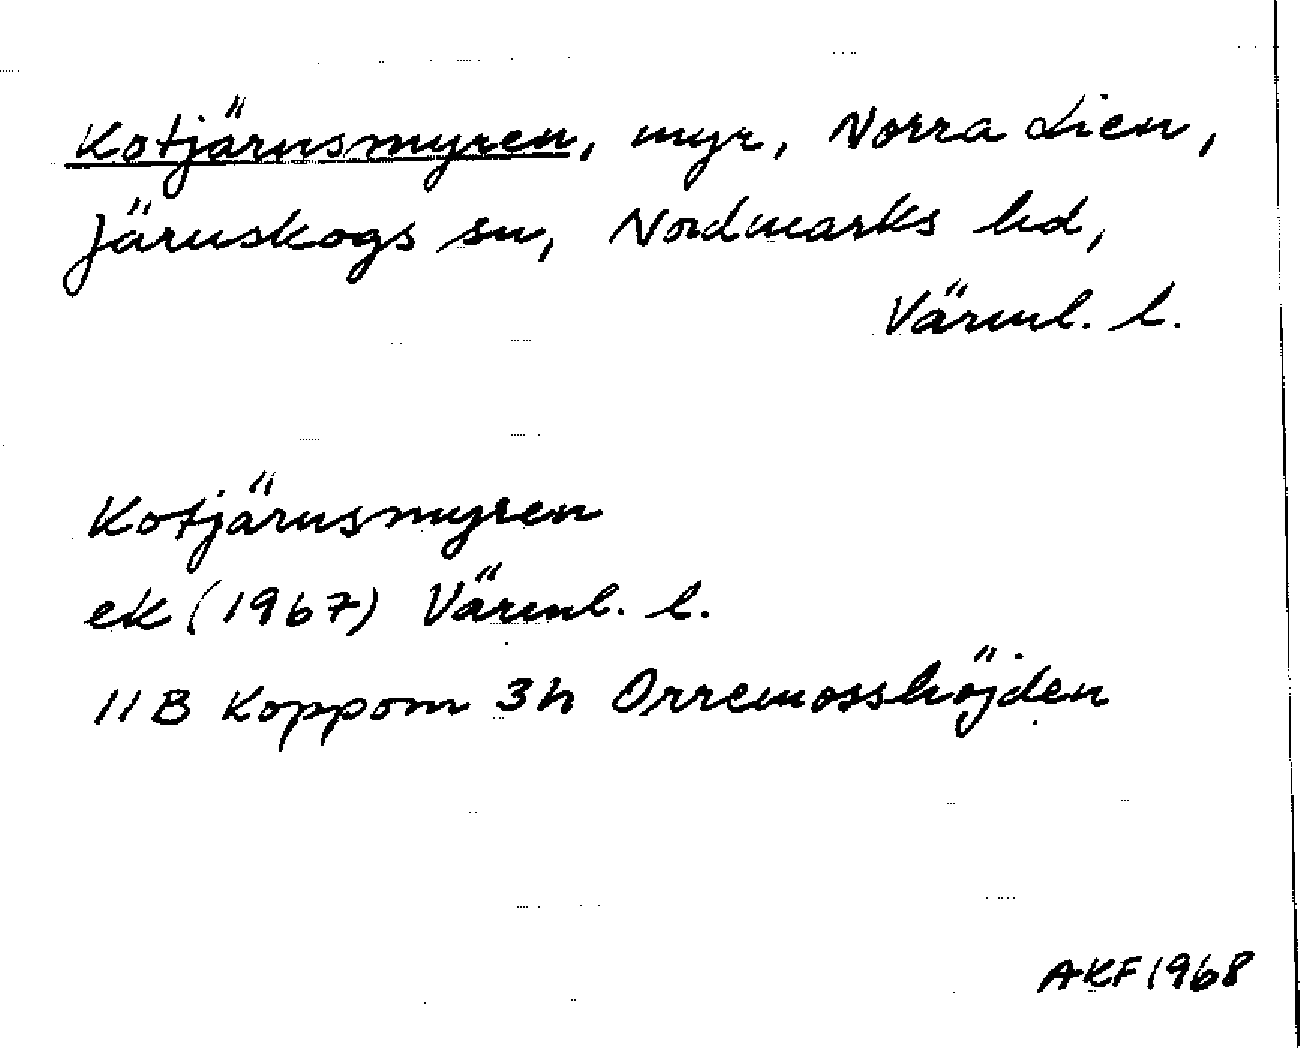 Kotjärnsmyren, myr, Norra Lien,
Järnskogs sn, Nordmarks hd,
Värml. l.
Kotjärnsmyren
ek (1967) Värml. l.
11B Koppom 3h Orremosshöjden
AKF 1968